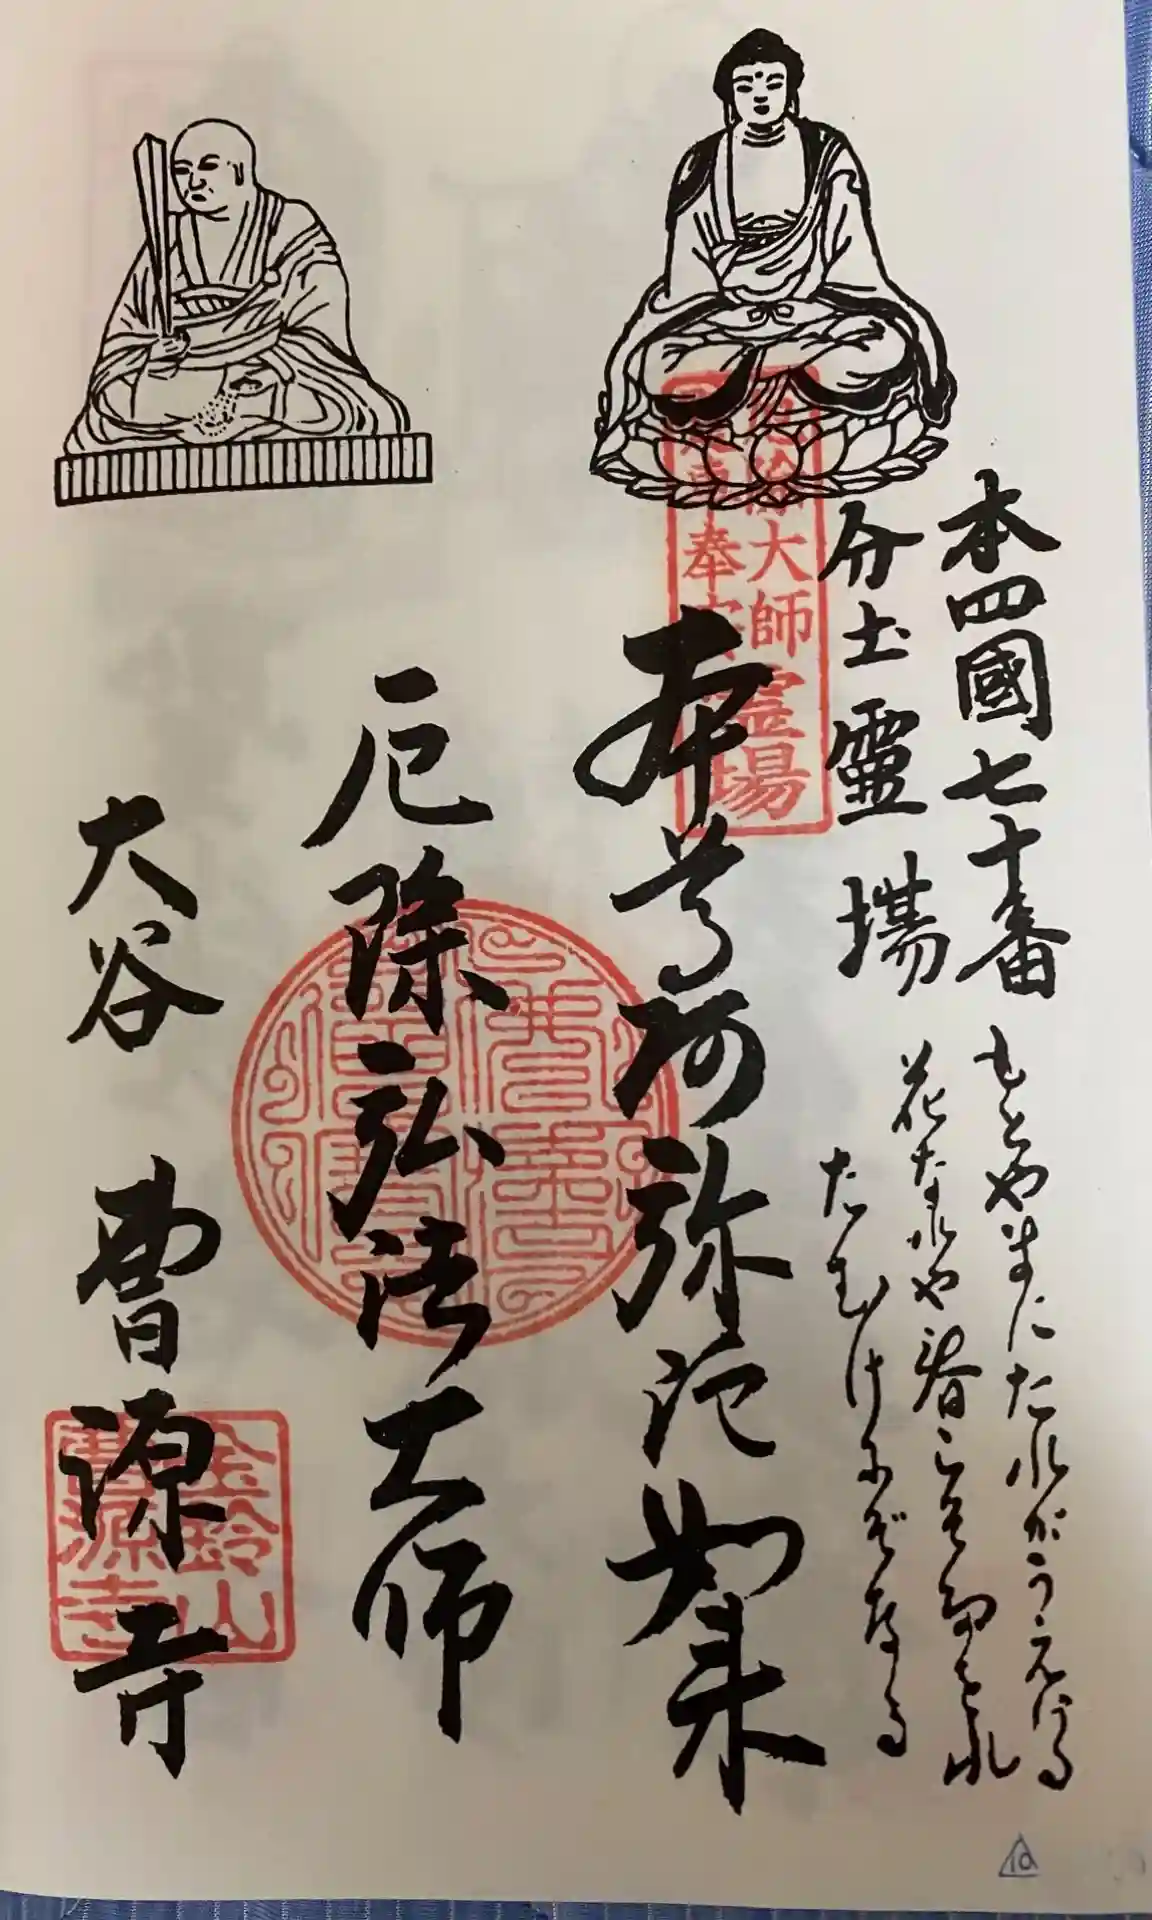 本四國七十番
もとやまにたれがうえける
分土靈場
花なれや春こそたをれ
たむけにぞなる
本尊阿弥陀如来
厄除弘法大師
大谷 曹源寺
大師
霊場
奉安
金鈴山
曹源寺
10